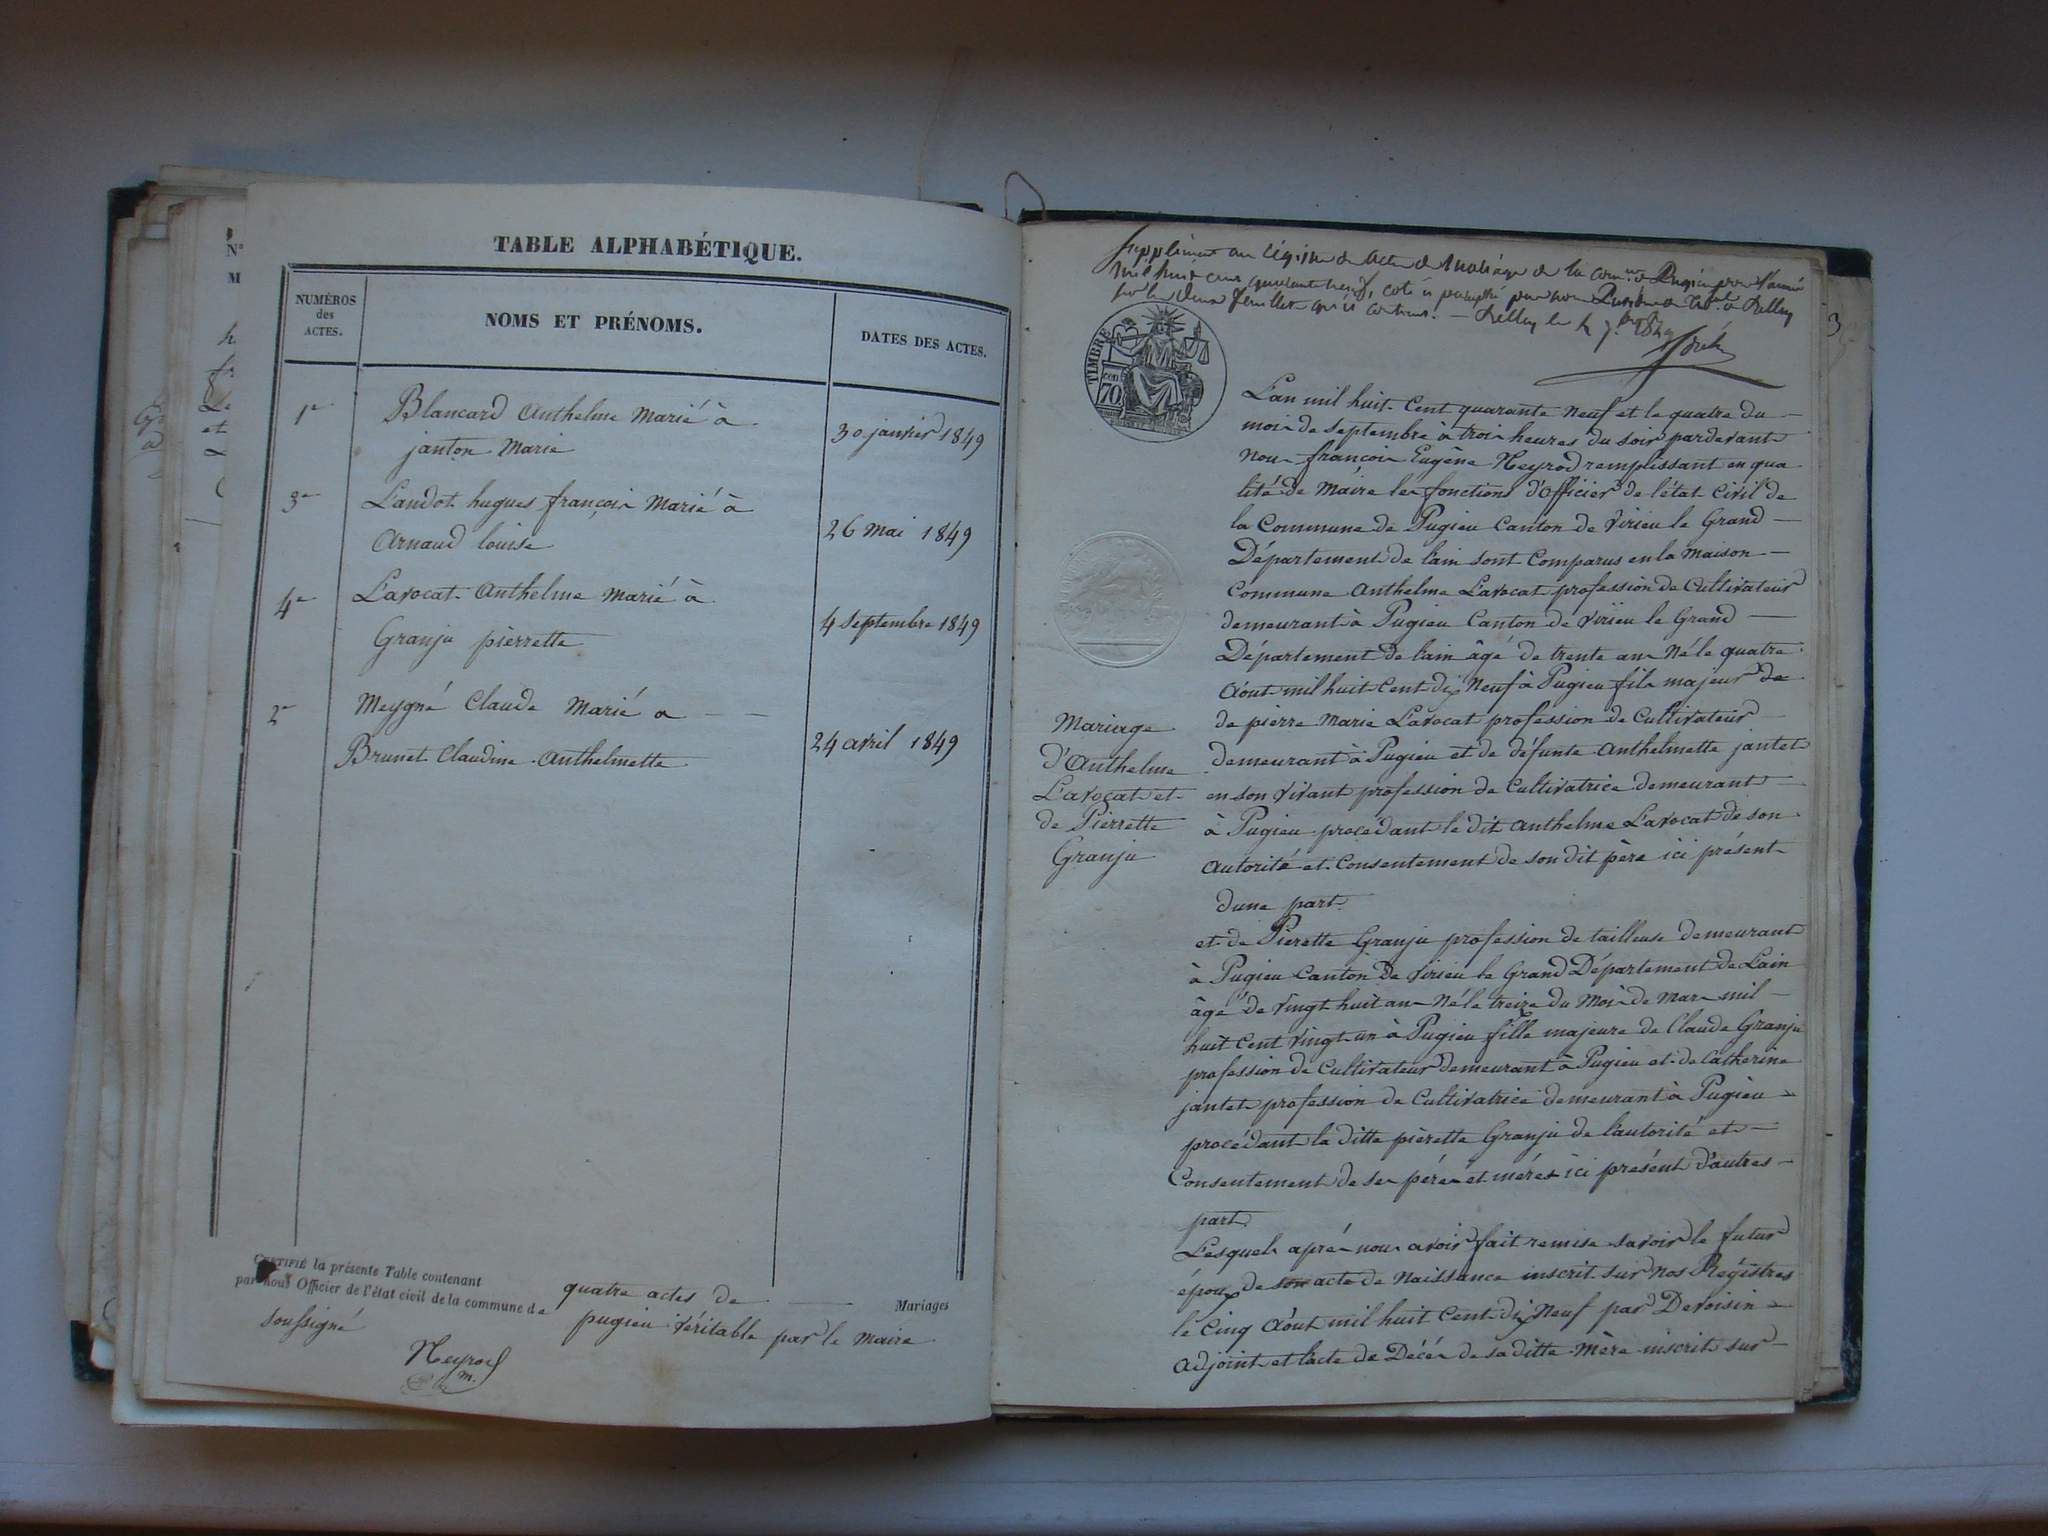 TABLE ALPHABÉTIQUE.
NUMÉROS
des
ACTES.
NOMS ET PRÉNOMS.
DATES DES ACTES.
1er
Blancard Anthelme Marié à
janton Marie
30 janvier 1849
3e
Landot hugues françois Marié à
Arnaud louise
26 Mai 1849
4e
Lavocat Anthelme Marié à
Granju pierrette
4 Septembre 1849
2e
Meygné Claude Marié a
Brunet Claudine Anthelmette
24 avril 1849
CERTIFIÉ la présente Table contenant quatre actes de Mariages
par nous Officier de l'état civil de la commune de pugieu véritable par le maire
soussigné
Neyrod
m.
Supplément au registre de actes de Mariage de la comne de Pugieu pour l'année
mil huit cent quarante neuf, coté et paraphé par nous Président du de Belley
sur les deux feuillets qu'il contient. — Belley le 4 7bre 1849
3
TIMBRE
70
L'an mil huit cent quarante neuf et le quatre du
mois de septembre à trois heures du soir pardevant
nous françois Eugène Neyrod remplissant en qua
lité de Maire les fonctions d'officier de l'état civil de
la Commune de Pugieu Canton de Virieu le Grand
Département de l'ain sont Comparus en la Maison
Commune Anthelme Lavocat profession de Cultivateur
demeurant à Pugieu Canton de Virieu le Grand
Département de l'ain âgé de trente ans Né le quatre
Août mil huit cent dix Neuf à Pugieu fils majeur de
de pierre Marie Lavocat profession de Cultivateur
demeurant à Pugieu et de défunte Anthelmette jantet
en son vivant profession de Cultivatrice demeurant
à Pugieu procédant le dit Anthelme Lavocat de son
Autorité et Consentement de son dit père ici présent
dune part.
Mariage
d'Anthelme
Lavocat et
de Pierrette
Granju
et de Pierette Granju profession de tailleuse demeurant
à Pugieu Canton de Virieu le Grand Département de Lain
âgé de Vingt huit ans Né le treize du Mois de Mars mil
huit cent Vingt un à Pugieu fille majeure de Claude Granju
profession de Cultivateur demeurant à Pugieu et de Catherine
jantet profession de Cultivatrice demeurant à Pugieu
procédant la ditte pierette Granju de l'autorité et
Consentement de ses pères et mères ici présent d'autres
part
Lesquels après nous avoir fait remise savoir le futur
époux de son acte de Naissance inscrit sur nos Régistres
le Cinq Août mil huit Cent dix Neuf par Devoisin
Adjoint et l'acte de Décés de sa ditte Mère inscrit sur